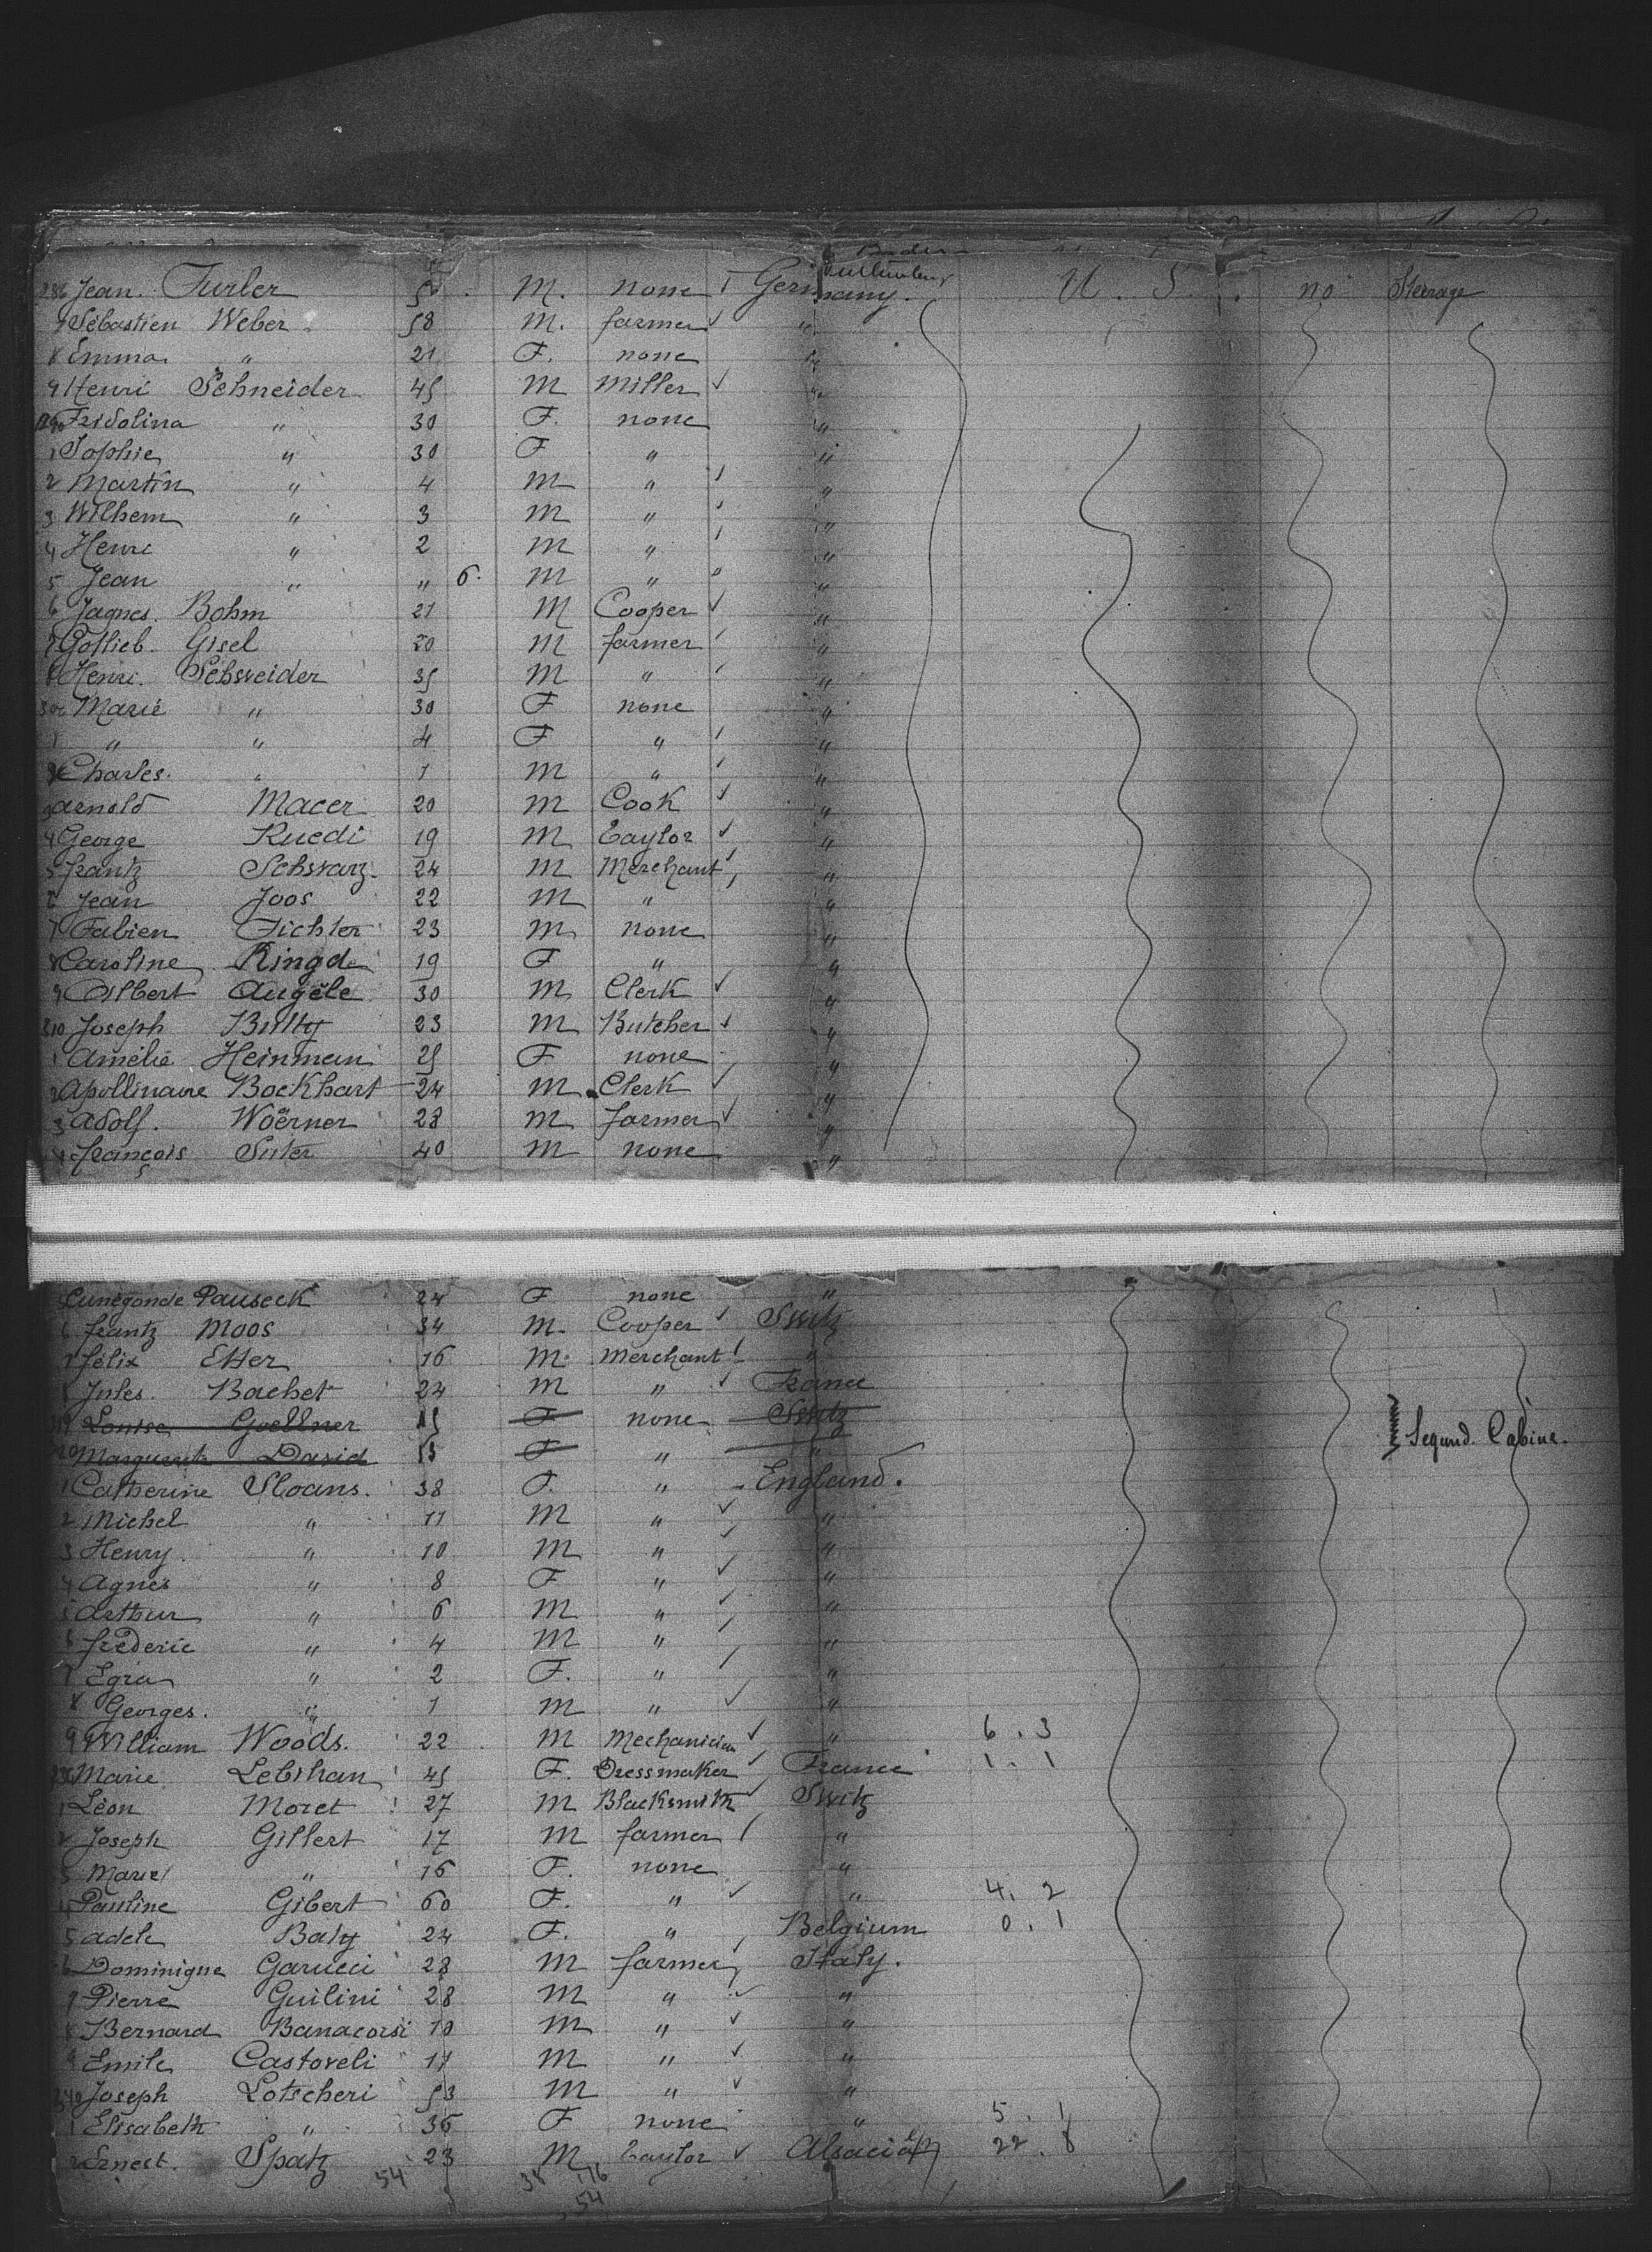 286 Jean. Furler M. none Germany. U. S. no Steerage
7 Sébastien Weber 58 M. farmer "
8 Emma " 21 F. none "
9 Henri Schneider 45 M Miller "
290 Fridolina " 30 F. none "
1 Sophie " 30 F " "
2 Martin " 4 M " "
3 Wilhem " 3 M " "
4 Henri " 2 M " "
5 Jean " " 6. M " "
6 Jagnes. Bohm 21 M Cooper "
7 Gottieb. Gisel 20 M farmer "
8 Henri. Schneider 35 M " "
300 Marie " 30 F none "
1 " " 4 F " "
2 Charles. " 1 M " "
3 Arnold Macer 20 M Cook "
4 George Ruedi 19 M Taylor "
5 frantz Schwarz. 24 M Merchant "
6 Jean Joos 22 M " "
7 Fabien Fichter 23 M none "
8 Caroline Ringd 19 F " "
9 Albert Augèle 30 M Clerk "
310 Joseph 23 M Butcher "
1 Amélie Heinman 25 F none "
2 Apollinaire Bockhart 24 M Clerk "
3 Adolf. Woërner 28 M farmer "
4 françois Suter 40 M none "
5 Cunégonde Pauseck 24 F none "
6 frantz Moos 34 M. Cooper Switz
7 félix Etter 16 M. Merchant "
8 Jules. Bachet 24 M " France
319 Louise Goellner F none Switz
320 Marguerite David F " " Segund. Cabine.
1 Catherine Sloans. 38 F. " England.
2 Michel " 11 M " "
3 Henry. " 10 M " "
4 Agnes " 8 F " "
5 Arthur " 6 M " "
6 frederic " 4 M " "
7 Egra " 2 F. " "
8 Georges. " 1 M " "
9 William Woods. 22 M Mechanician " 6. 3
330 Marie Lebihan 45 F. Dressmaker France 1. 1
1 Léon Moret 27 M Blacksmith Switz
2 Joseph Gillert 17 M farmer "
3 Marie " 16 F. none "
4 Pauline Gibert 60 F. " " 4. 2
5 Adele Baty 24 F. " Belgium 0. 1
6 Dominique Garucci 28 M farmer Italy.
7 Pierre Guilini 28 M " "
8 Bernard Banacorsi 10 M " "
9 Emile Castoveli 17 M " "
340 Joseph Lotscheri 53 M " "
1 Elisabeth " 36 F none " 5. 1
2 Ernest. Spatz 23 M taylor Alsacia 22. 8
54 38 16
54